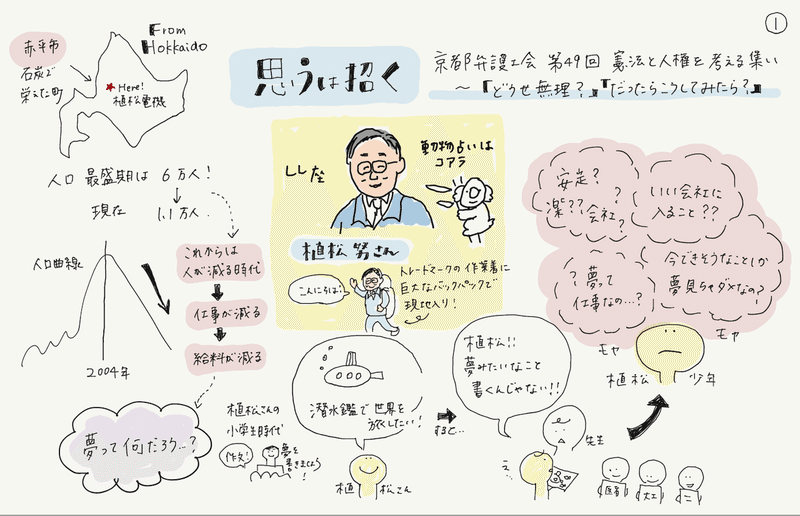 ①
From
Hokkaido
赤平市
石炭で
栄えた町
Here!
植松電機
思うは招く
京都弁護士会 第49回 憲法と人権を考える集い
～『どうせ無理?』『だったらこうしてみたら?』
人口 最盛期は 6万人!
現在 1.1万人
人口曲線
2004年
これからは
人が減る時代
仕事が減る
給料が減る
夢って何だろう…?
しし座
動物占いは
コアラ
植松 努さん
こんにちは!
トレードマークの作業着に
巨大なバックパックで
現地入り!
植松さんの
小学生時代
作文!
夢を
書きましょう!
潜水鑑で世界を
旅したい!
植松さん
すると…
植松!!
夢みたいなこと
書くんじゃない!!
先生
え…
医者
大工
安定?
楽?? 会社?
?
いい会社に
入ること??
? 夢って
仕事なの…?
今できそうなことしか
夢見ちゃダメなの?
モヤ
モヤ
植松 少年